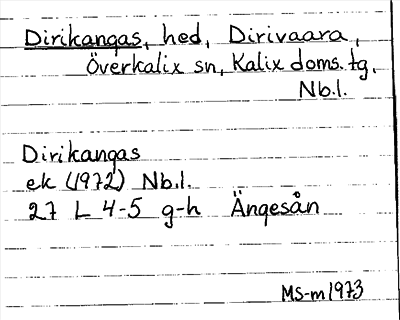 Dirikangas, hed, Dirivaara,
Överkalix sn, Kalix doms. tg,
Nb.l.
Dirikangas
ek (1972) Nb.l.
27 L 4-5 g-h Ängesån
MS-m 1973